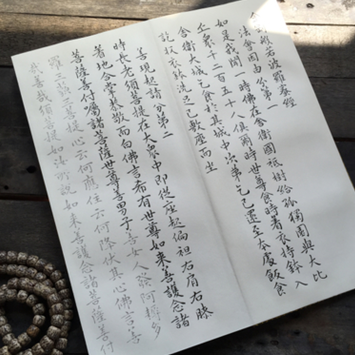 金剛般若波羅蜜經
法會因由分第一
如是我聞一時佛在舍衛國祇樹給孤獨園與大比
丘眾千二百五十人俱爾時世尊食時著衣持鉢入
舍衛大城乞食於其城中次第乞已還至本處飯食
訖收衣鉢洗足已敷座而坐
善現起請分第二
時長老須菩提在大眾中即從座起偏袒右肩右膝
著地合掌恭敬而白佛言希有世尊如來善護念諸
菩薩善付囑諸菩薩世尊善男子善女人發阿耨多
羅三藐三菩提心云何應住云何降伏其心佛言善
哉善哉須菩提如汝所說如來善護念諸菩薩善付